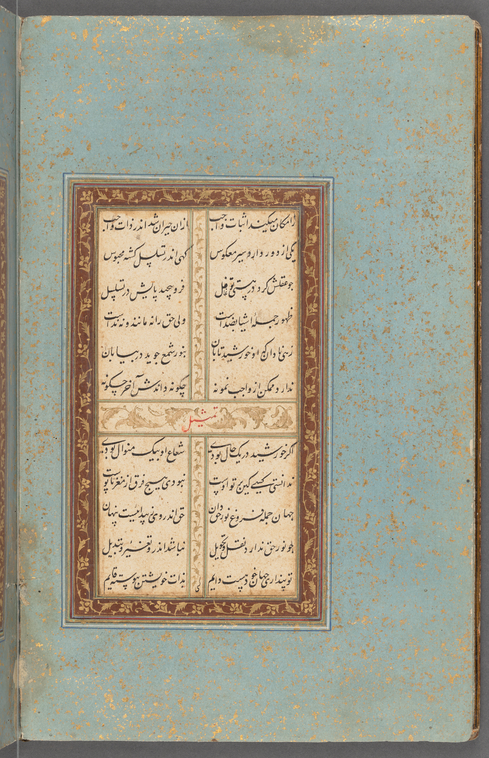 زامکان میکند اثبات واجب ازان حیران شد اندر ذات واجب
گهی از دور دارد سیر معکوس گهی اندر تسلسل گشته محبوس
چو عقلش کرد در هستی توغل فرو پیچید پایش در تسلسل
ظهور جمله اشیا بضدست ولی حق را نه مانند و نه ندست
زهی نادان که او خورشید تابان بنور شمع جوید در بیابان
ندارد ممکن از واجب نمونه چگونه داندش آخر چگونه
تمثیل
اگر خورشید در یک حال بودی شعاع او بیک منوال بودی
ندانستی کسی کین پرتو اوست نبودی هیچ فرق از مغز تا پوست
جهان جمله فروغ نور حق دان حق اندر وی ز پیدائیست پنهان
چو نور حق ندارد نقل و تحویل نباشد اندرو تغییر و تبدیل
تو پنداری جهان خود هست دایم بذات خویشتن پیوسته قایم